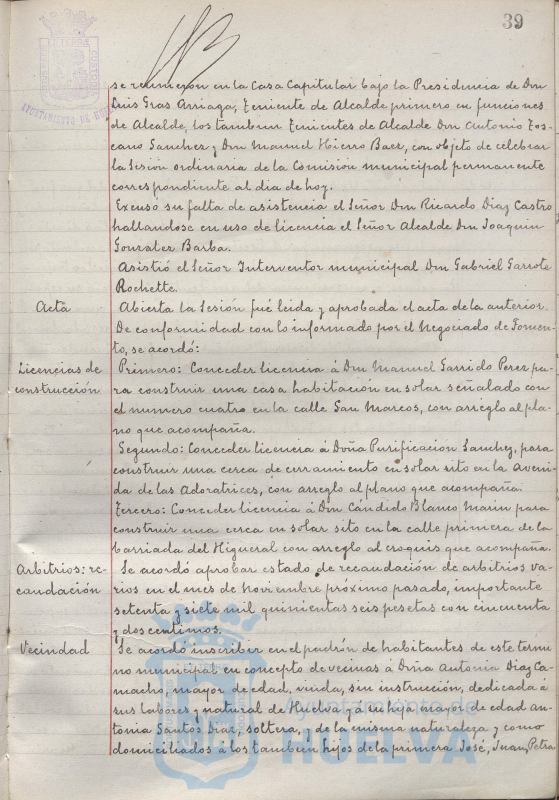 39
AYUNTAMIENTO DE
se reunieron en la Casa Capitular bajo la Presidencia de Don
Luis Gras Arriaga, Teniente de Alcalde primero en funciones
de Alcalde, los tambien Tenientes de Alcalde Don Antonio Tos-
cano Sanchez y Don Manuel Hierro Baez, con objeto de celebrar
la sesión ordinaria de la Comisión municipal permanente
correspondiente al dia de hoy.
Excusó su falta de asistencia el Señor Don Ricardo Diaz Castro
hallandose en uso de licencia el Señor Alcalde Don Joaquin
Gonzalez Barba.
Asistió el Señor Interventor municipal Don Gabriel Garrote
Rochette.
Acta
Abierta la sesión fué leida y aprobada el acta de la anterior.
De conformidad con lo informado por el Negociado de Fomen-
to, se acordó:
Licencias de
construcción
Primero: Conceder licencia á Don Manuel Garrido Perez pa-
ra construir una casa habitación en solar señalado con
el numero cuatro en la calle San Marcos, con arreglo al pla-
no que acompaña.
Segundo: Conceder licencia á Doña Purificación Sanchez, para
construir una cerca de cerramiento en solar sito en la Aveni-
da de las Adoratrices, con arreglo al plano que acompaña.
Tercero: Conceder licencia á Don Cándido Blanco Marin para
construir una cerca en solar sito en la calle primera de la
barriada del Higueral con arreglo al croquis que acompaña.
Arbitrios: re-
caudación
Se acordó aprobar estado de recaudación de arbitrios va-
rios en el mes de Noviembre próximo pasado, importante
setenta y siete mil quinientas seis pesetas con cincuenta
y dos centimos.
Vecindad
Se acordó inscribir en el padrón de habitantes de este termi
no municipal en concepto de vecinas á Doña Antonia Diaz Ca-
macho, mayor de edad, viuda, sin instrucción, dedicada á
sus labores y natural de Huelva y á su hija mayor de edad An-
tonia Santos Diaz, soltera, y de la misma naturaleza y como
domiciliados á los tambien hijos de la primera José, Juan, Petra
Ayuntamiento de
HUELVA